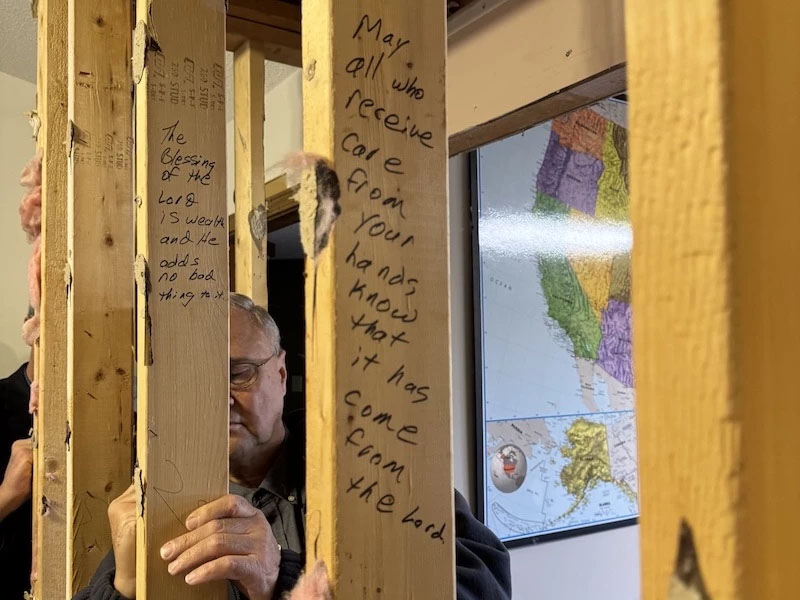 The
Blessing
of the
Lord
is wealth
and He
adds
no bad
thing to it
May
all who
receive
care
from
your
hands
know
that
it has
come
from
the Lord
2X6 STUD
OCEAN